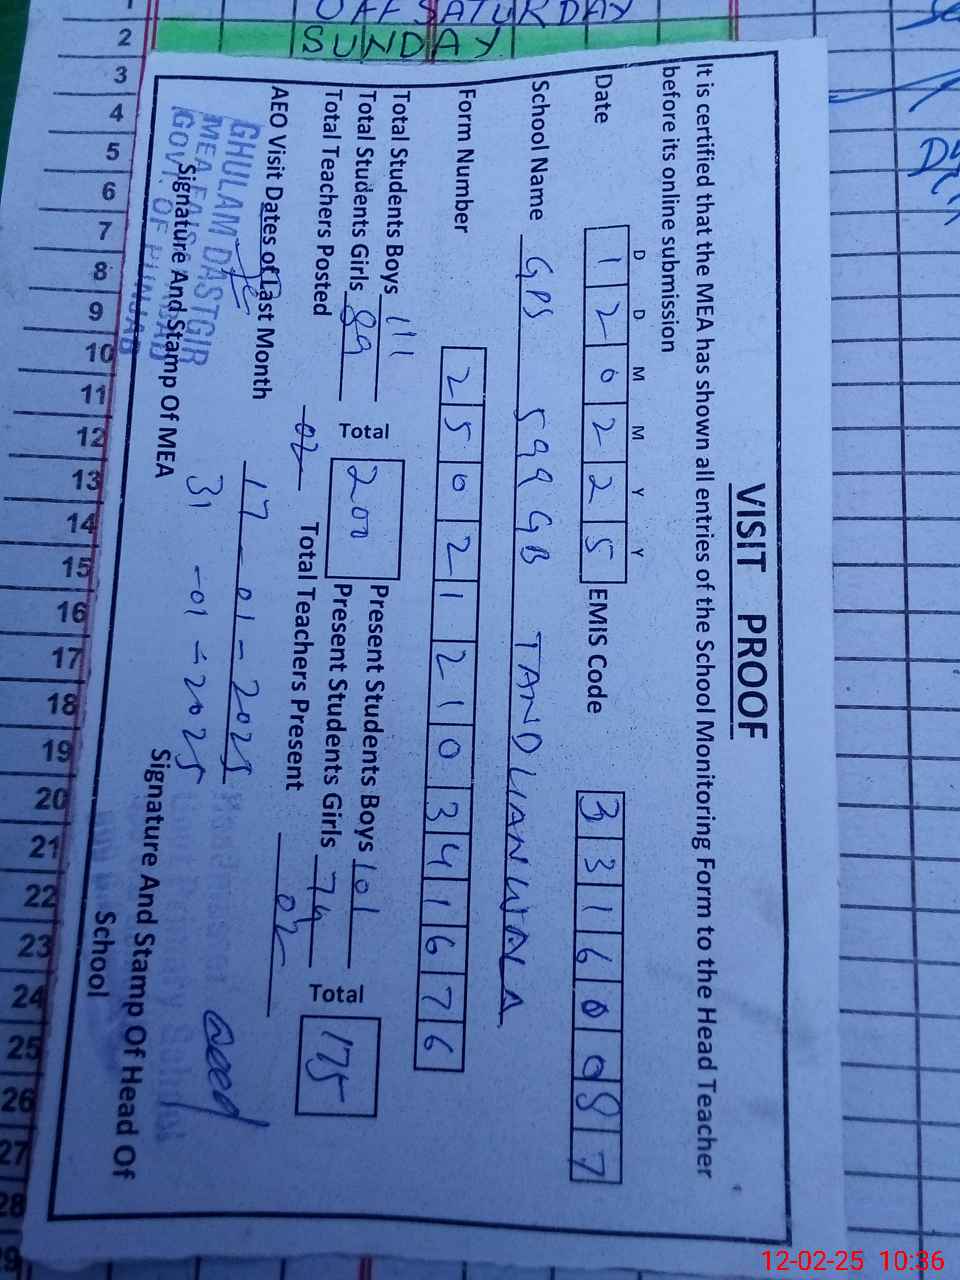 OFF SATURDAY
SUNDAY
VISIT PROOF
It is certified that the MEA has shown all entries of the School Monitoring Form to the Head Teacher
before its online submission
D D M M Y Y
Date 1 2 0 2 2 5 EMIS Code 3 3 1 6 0 0 8 7
School Name GPS 599 GB TANDLIANWALA
Form Number 2 5 0 2 1 2 1 0 3 4 1 6 7 6
Total Students Boys 111 Total 200 Present Students Boys 101 Total 175
Total Students Girls 89 Present Students Girls 74
Total Teachers Posted 02 Total Teachers Present 02
AEO Visit Dates of Last Month 17-01-2025
31-01-2025
GHULAM DASTGIR
MEA FAISALABAD
GOVT. OF PUNJAB
Signature And Stamp Of MEA
Signature And Stamp Of Head Of
School
2
3
4
5
6
7
8
9
10
11
12
13
14
15
16
17
18
19
20
21
22
23
24
25
26
27
28
29
12-02-25 10:36